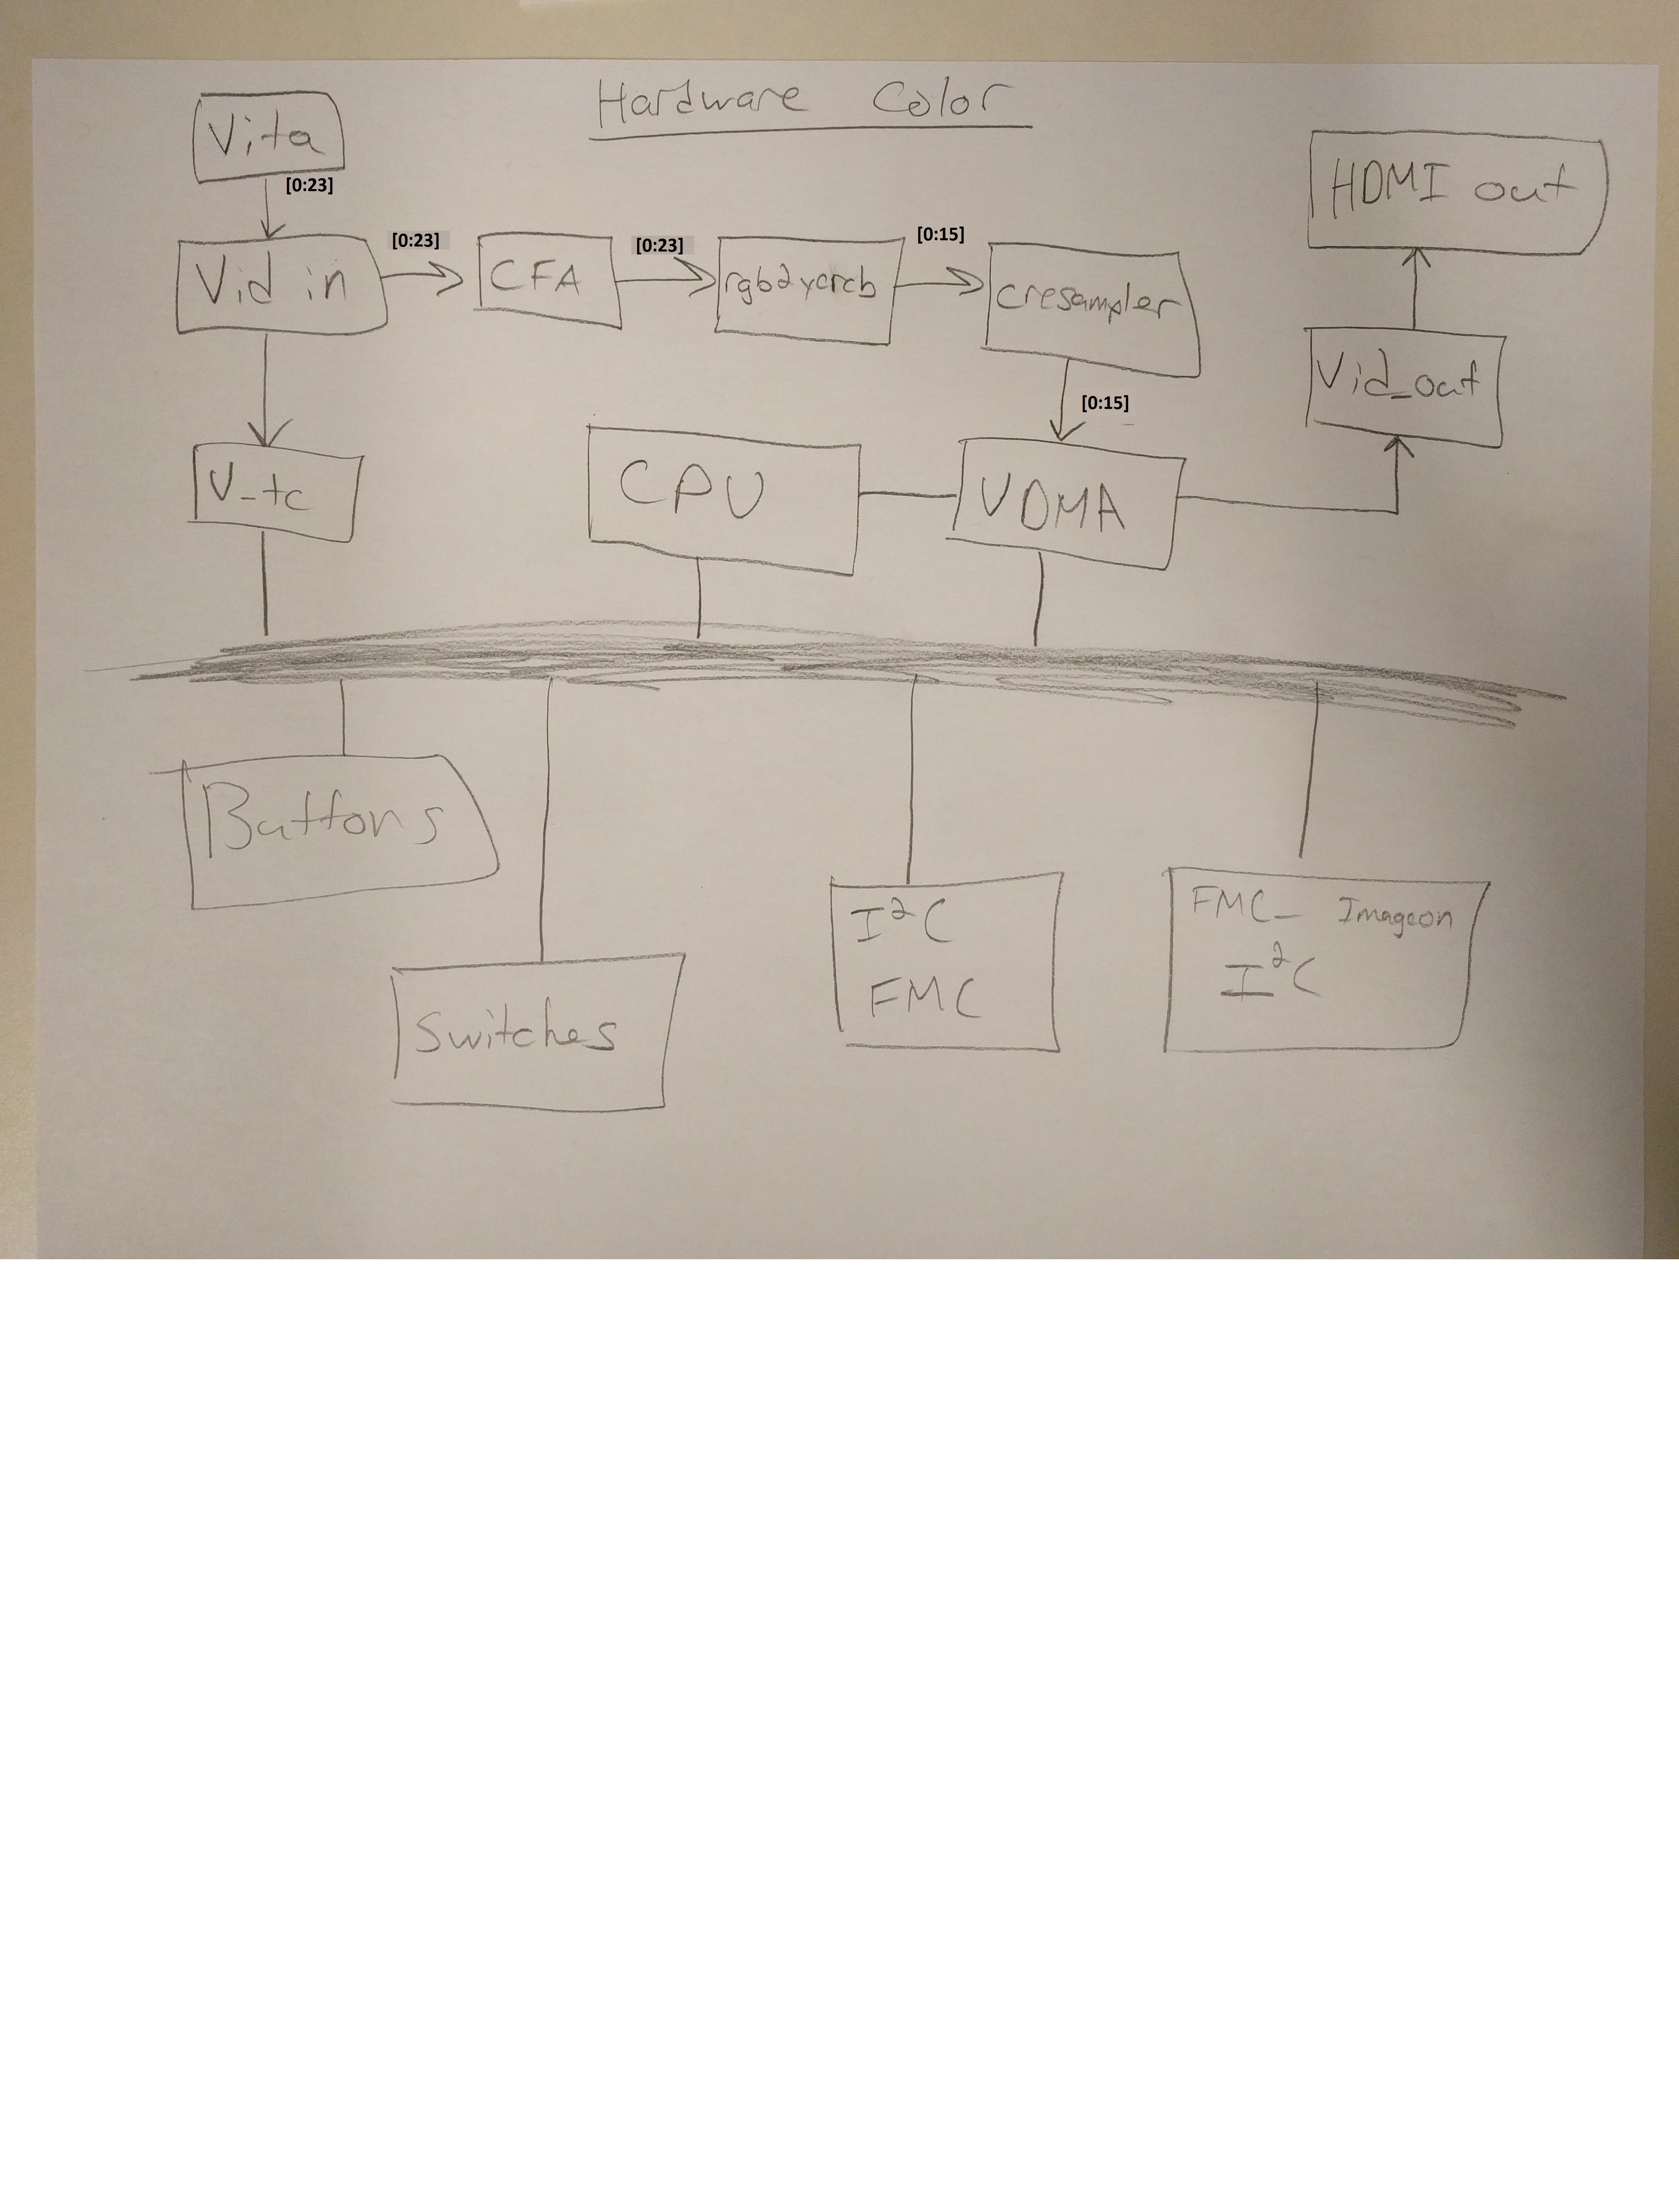 Hardware Color
Vita
[0:23]
HDMI out
Vid in
[0:23]
CFA
[0:23]
rgb2ycrcb
[0:15]
cresampler
Vid_out
[0:15]
V_tc
CPU
VDMA
Buttons
Switches
I²C
FMC
FMC_ Imageon
I²C